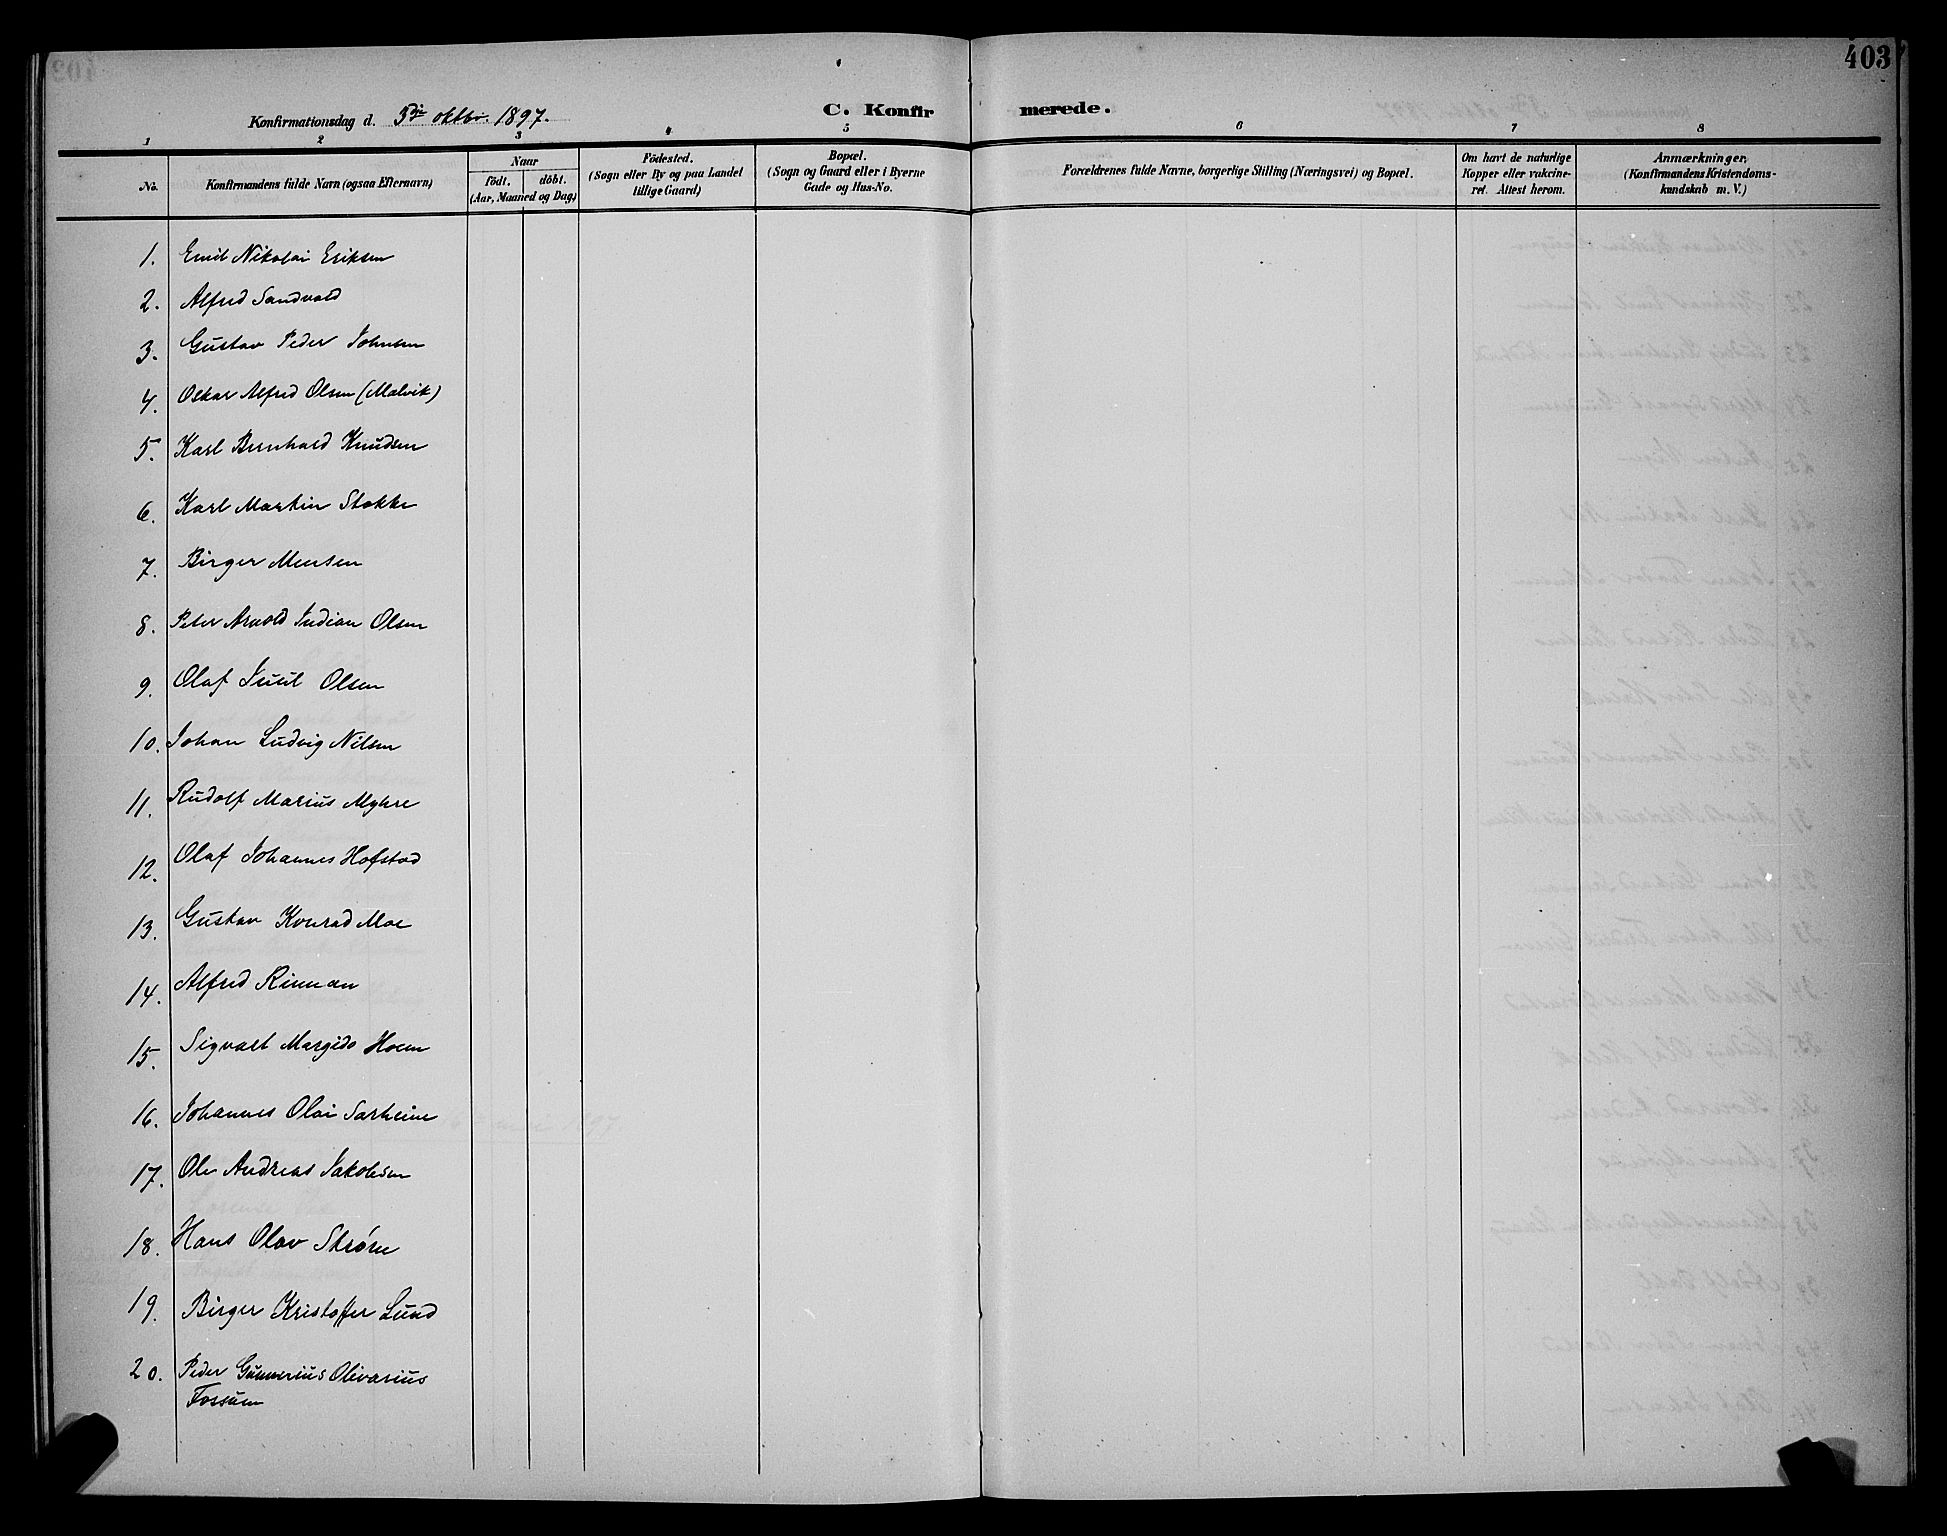 403
Konfirmationsdag d. 3die oktbr. 1897.
C. Konfirmerede.
1 2 3 4 5 6 7 8
No.
Konfirmandens fulde Navn (ogsaa Efternavn)
Naar
födt.
döbt.
(Aar, Maaned og Dag)
Födested.
(Sogn eller By og paa Landet
tillige Gaard)
Bopæl.
(Sogn og Gaard eller i Byerne
Gade og Hus-No.
Forældrenes fulde Navne, borgerlige Stilling (Næringsvei) og Bopæl.
Om havt de naturlige
Kopper eller vakcine-
ret. Attest herom.
Anmærkninger.
(Konfirmandens Kristendoms-
kundskab m. V.)
1. Emil Nikolai Eriksen
2. Alfred Sandvold
3. Gustav Peder Johnsen
4. Oskar Alfred Olsen (Malvik)
5. Karl Bernhard Knudsen
6. Karl Martin Stokke
7. Birger Monsen
8. Peter Arnold Indian Olsen
9. Olaf Juul Olsen
10. Johan Ludvig Nilsen
11. Rudolf Marius Myhre
12. Olaf Johannes Hofstad
13. Gustav Konrad Moe
14. Alfred Rinnan
15. Sigvalt Margido Hoem
16. Johannes Olai Sarheim
17. Ole Andreas Jakobsen
18. Hans Olav Strøm
19. Birger Kristoffer Lund
20. Peder Gunnerius Olivarius
Fossum